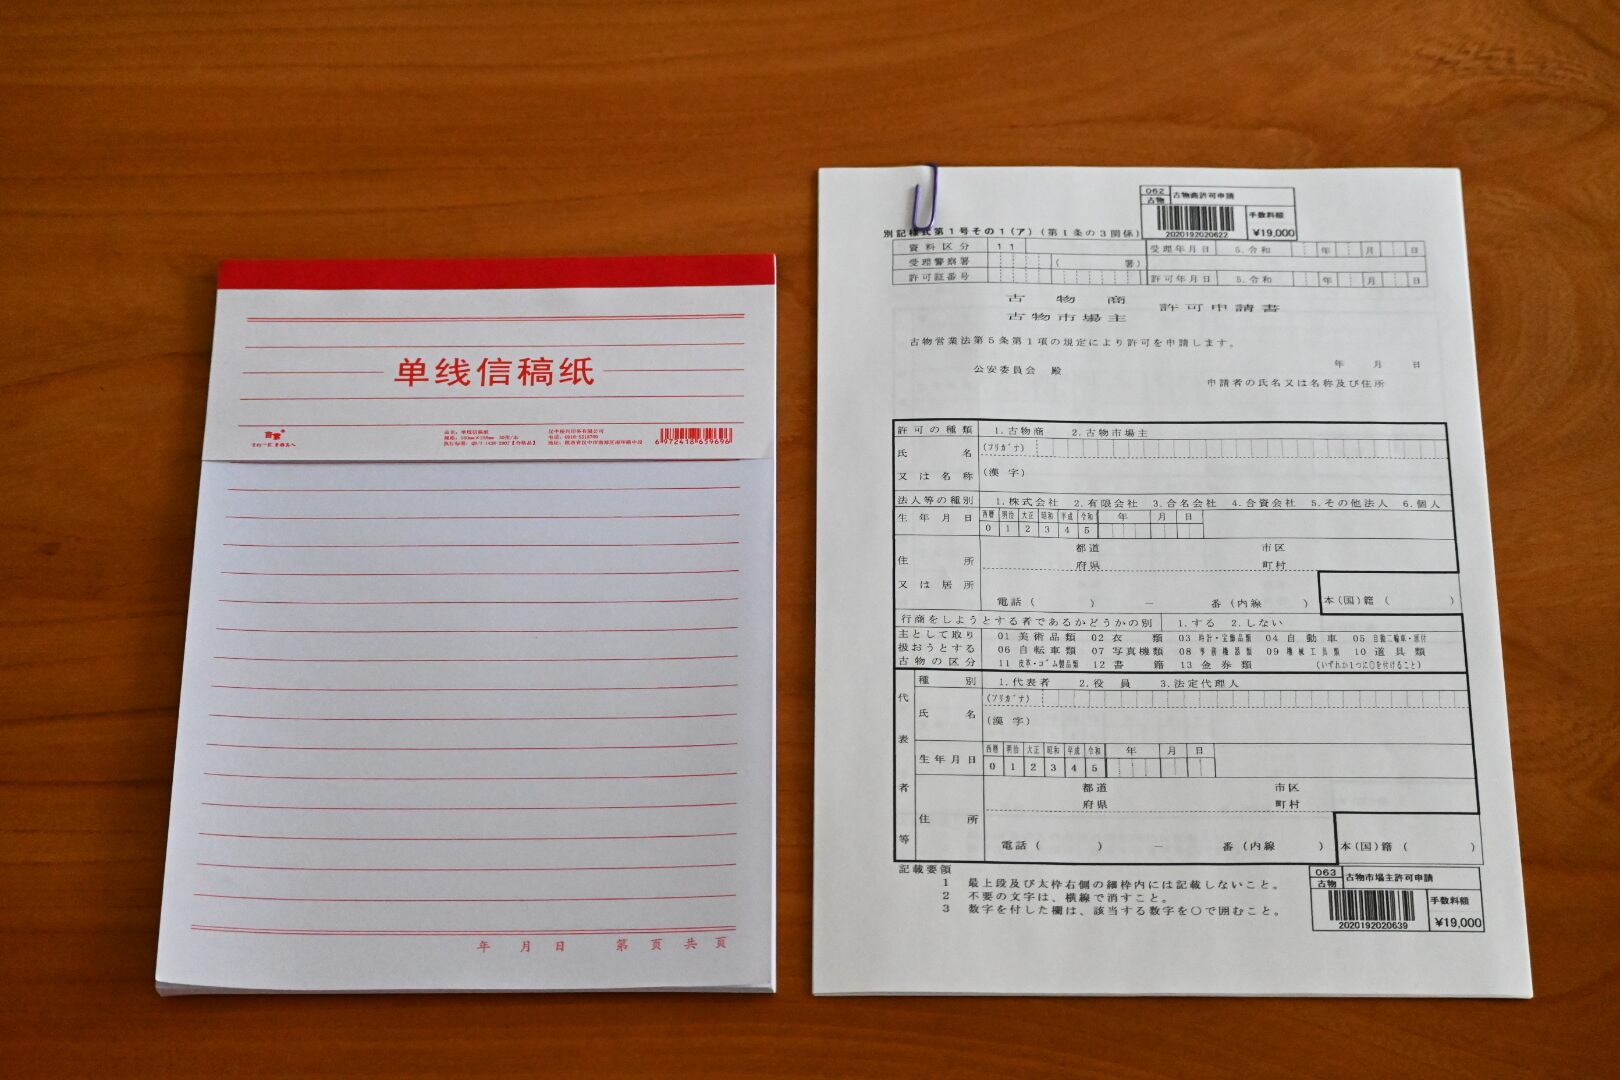 单线信稿纸
品名：单线信稿纸
汉中裕兴印务有限公司
6972418659696
年 月 日 第 页 共 页
062 古物商許可申請
古物
手数料額
2020192020622 ¥19,000
別記様式第１号その１（ア）（第１条の３関係）
資料区分 １１ 受理年月日 ５.令和 年 月 日
受理警察署 （ 署）
許可証番号 許可年月日 ５.令和 年 月 日
古物商
古物市場主
許可申請書
古物営業法第５条第１項の規定により許可を申請します。
年 月 日
公安委員会 殿
申請者の氏名又は名称及び住所
許可の種類 １.古物商 ２.古物市場主
氏名 (フリガナ)
又は名称 (漢字)
法人等の種別 １.株式会社 ２.有限会社 ３.合名会社 ４.合資会社 ５.その他法人 ６.個人
生年月日 西暦 明治 大正 昭和 平成 令和 年 月 日
0 1 2 3 4 5
住所 都道 市区
府県 町村
又は居所
電話（ ） － 番（内線 ） 本(国)籍（ ）
行商をしようとする者であるかどうかの別 １.する ２.しない
主として取り扱おうとする古物の区分
01 美術品類 02 衣類 03 時計・宝飾品類 04 自動車 05 自動二輪車・原付
06 自転車類 07 写真機類 08 事務機器類 09 機械工具類 10 道具類
11 皮革・ゴム製品類 12 書籍 13 金券類 (いずれか１つに○を付けること)
代表者等
種別 １.代表者 ２.役員 ３.法定代理人
(フリガナ)
氏名
(漢字)
生年月日 西暦 明治 大正 昭和 平成 令和 年 月 日
0 1 2 3 4 5
都道 市区
府県 町村
住所
電話（ ） － 番（内線 ） 本(国)籍（ ）
記載要領
１ 最上段及び太枠右側の細枠内には記載しないこと。
２ 不要の文字は、横線で消すこと。
３ 数字を付した欄は、該当する数字を○で囲むこと。
063 古物市場主許可申請
古物
手数料額
2020192020639 ¥19,000